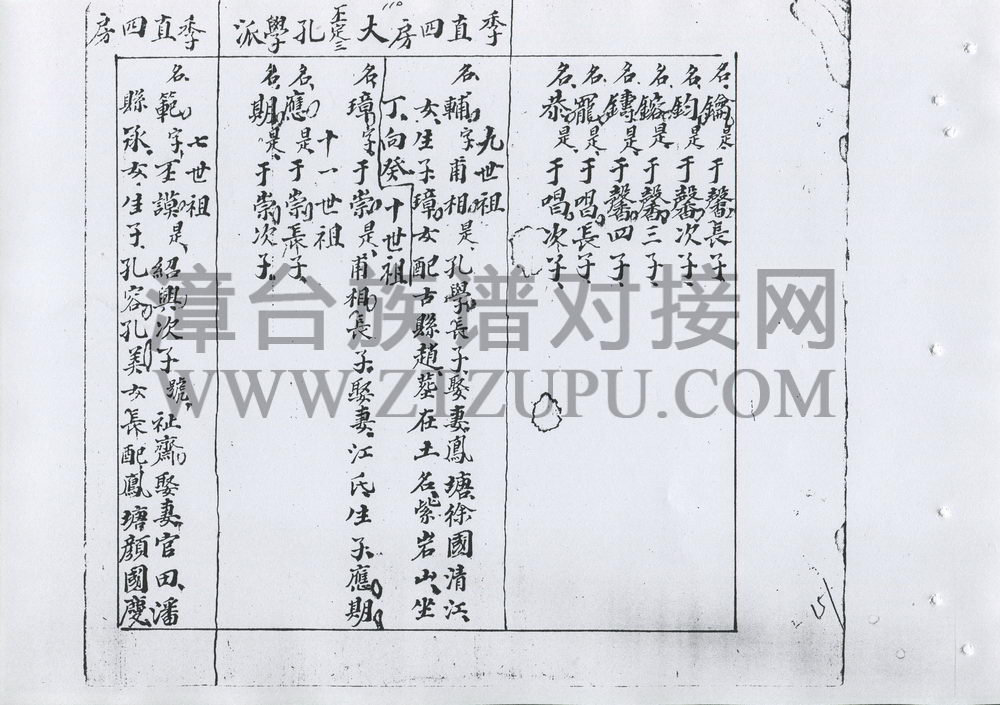 季直四房大孔學派
季直四房
名鑰是于馨長子
名鈞是于馨次子
名鎔是于馨三子
名鑄是于馨四子
名寵是于唱長子
名恭是于唱次子
九世祖
名輔字甫相是孔學長子娶妻鳳塘徐國清江
女生子璋女配古縣趙塟在土名紫岩山坐
丁向癸
十世祖
名璋字于崇是甫相長子娶妻江氏生子應期
十一世祖
名應是于崇長子
名期是于崇次子
七世祖
名範字玉謨是紹興次子號祉齋娶妻官田潘
縣丞女生子孔容孔美女長配鳳塘顏國慶
漳台族谱对接网
WWW.ZIZUPU.COM
151